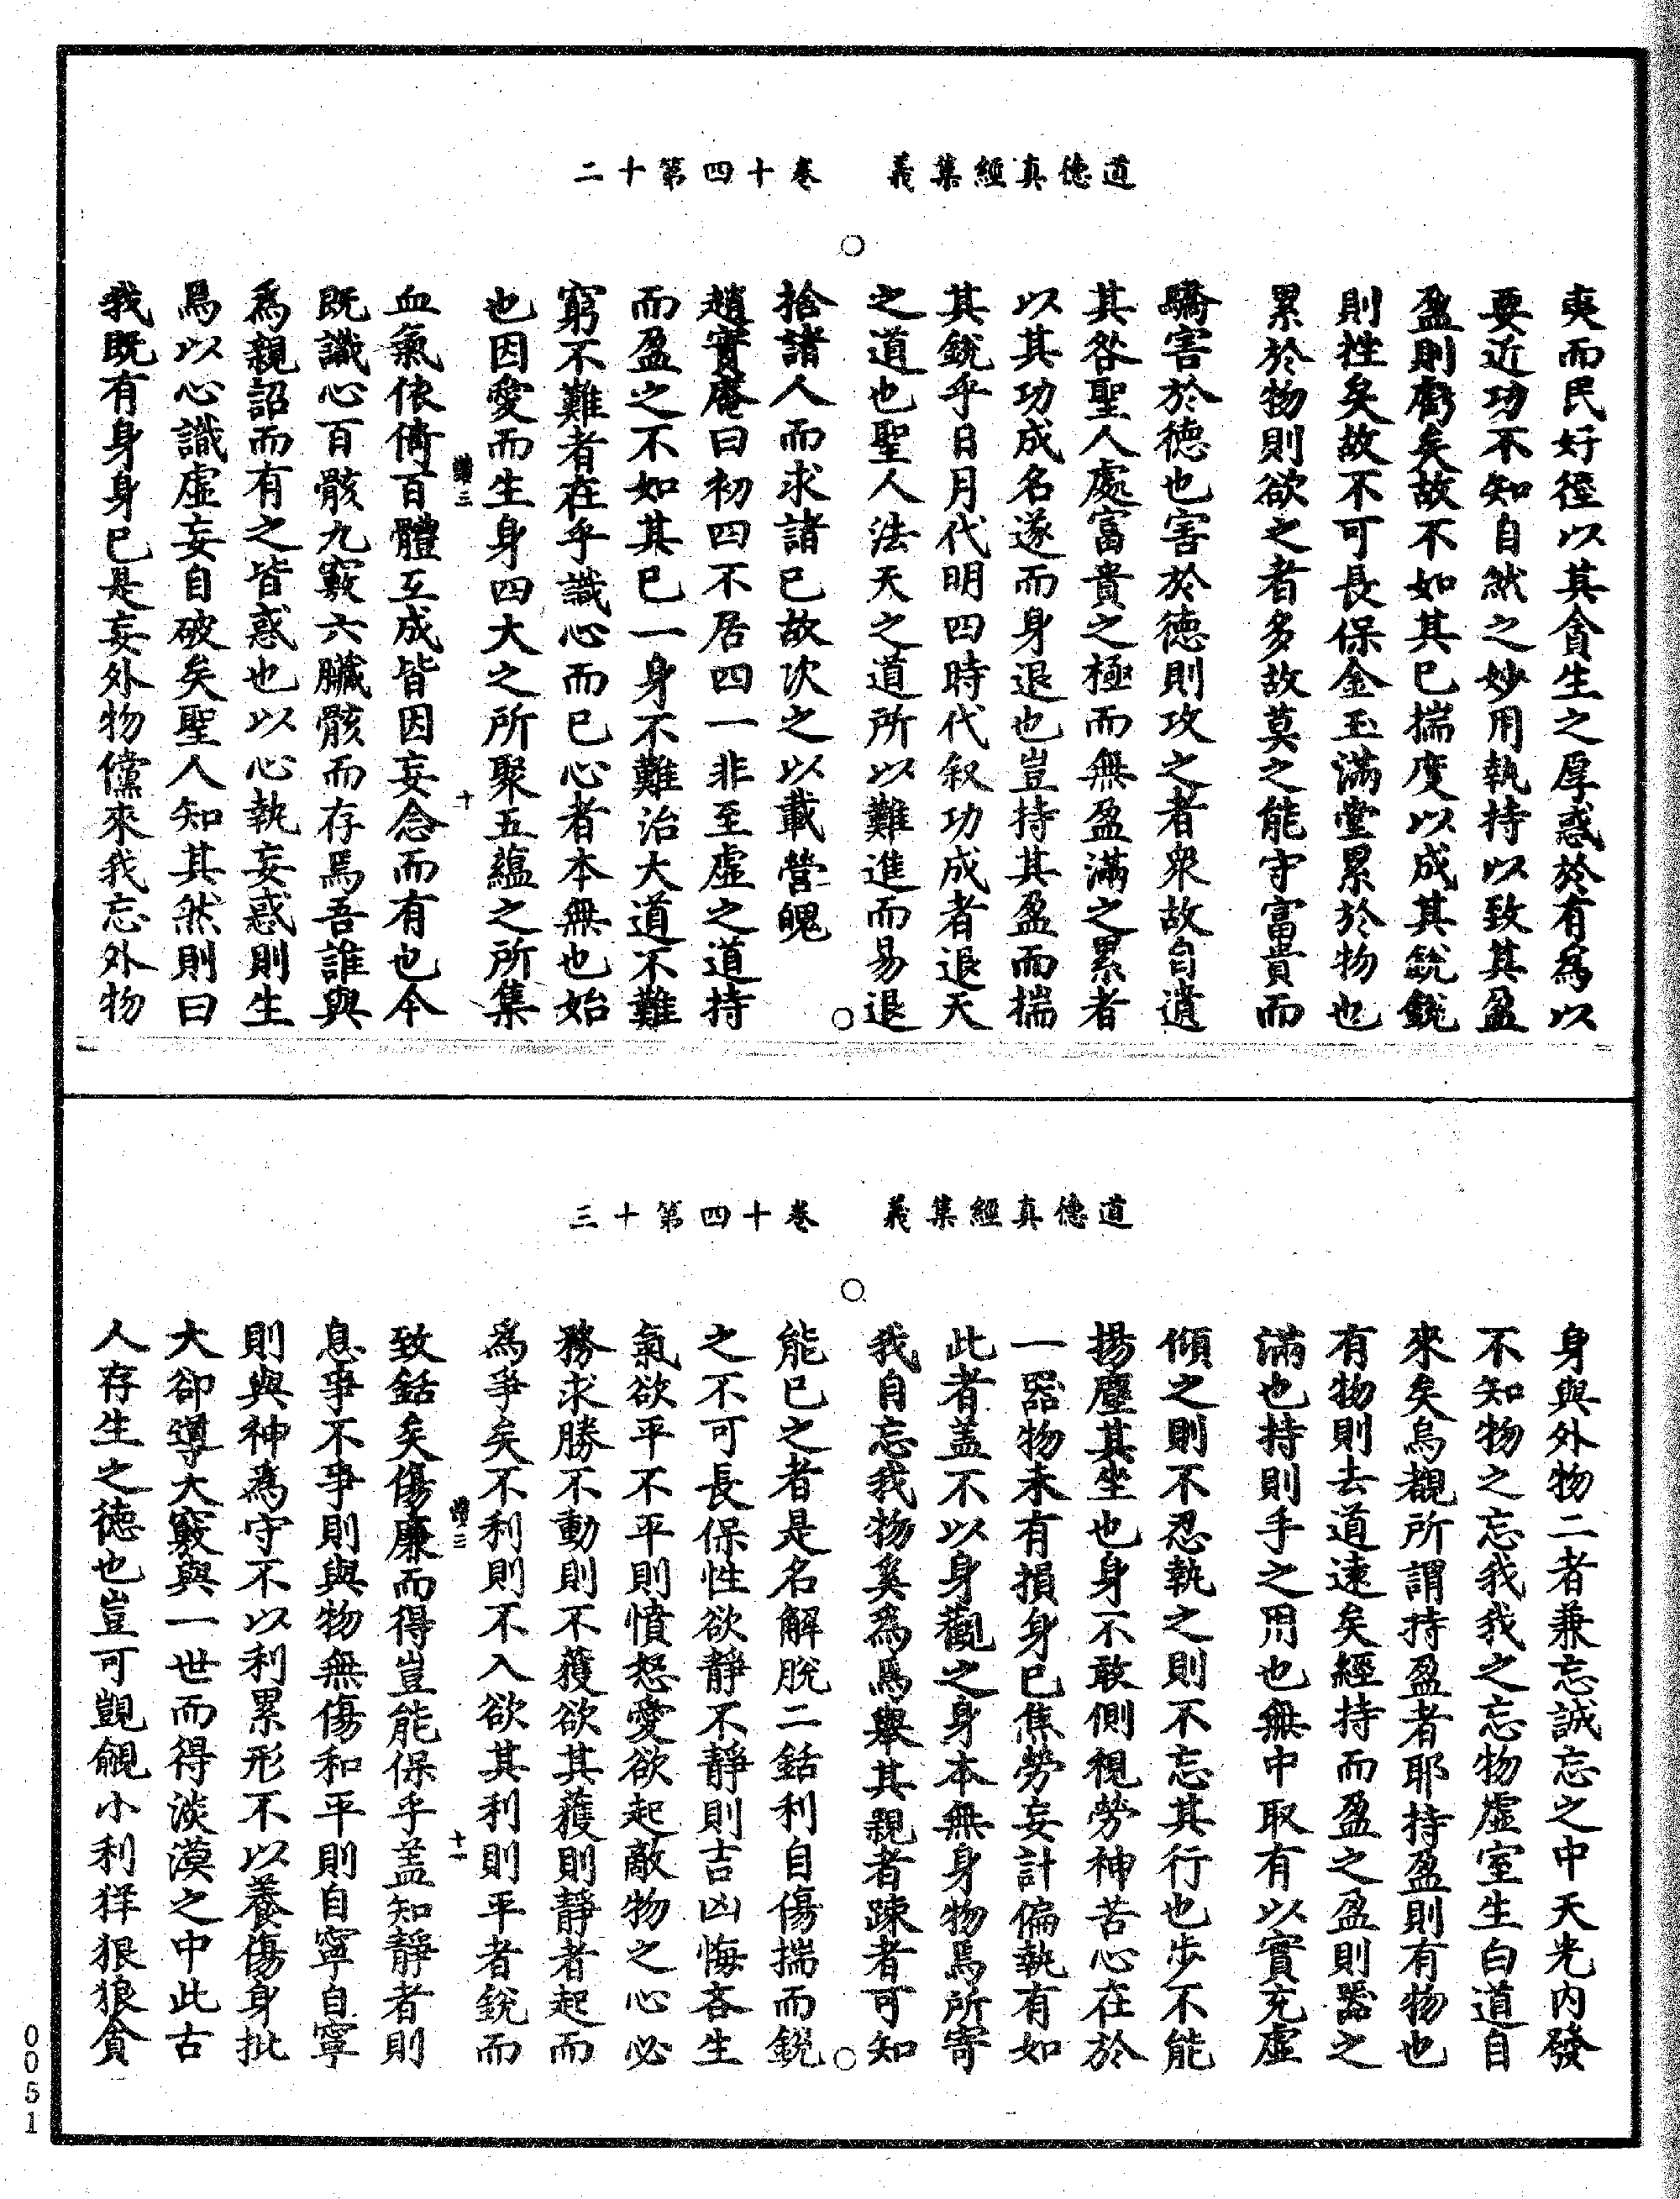 道德真經集義　卷十四第十二
夷而民好徑以其貪生之厚惑於有為以
要近功不知自然之妙用執持以致其盈
盈則虧矣故不如其已揣度以成其銳銳
則挫矣故不可長保金玉滿堂累於物也
累於物則欲之者多故莫之能守富貴而
驕害於德也害於德則攻之者衆故自遺
其咎聖人處富貴之極而無盈滿之累者
以其功成名遂而身退也豈持其盈而揣
其銳乎日月代明四時代叙功成者退天
之道也聖人法天之道所以難進而易退
捨諸人而求諸已故次之以載營魄
趙實庵曰初四不居四一非至虛之道持
而盈之不如其已一身不難治大道不難
窮不難者在乎識心而已心者本無也始
也因愛而生身四大之所聚五蘊之所集
血氣依倚百體互成皆因妄念而有也今
既識心百骸九竅六臟骸而存焉吾誰與
為親詔而有之皆惑也以心執妄惑則生
焉以心識虛妄自破矣聖人知其然則曰
我既有身身已是妄外物儻來我忘外物
道德真經集義　卷十四第十三
身與外物二者兼忘誠忘之中天光內發
不知物之忘我我之忘物虛室生白道自
來矣烏覩所謂持盈者耶持盈則有物也
有物則去道速矣經持而盈之盈則器之
滿也持則手之用也無中取有以實充虛
傾之則不忍執之則不忘其行也步不能
揚塵其坐也身不敢側視勞神苦心在於
一器物未有損身已焦勞妄計偏執有如
此者盖不以身觀之身本無身物焉所寄
我自忘我物奚為焉舉其親者踈者可知
能已之者是名解脫二銛利自傷揣而銳
之不可長保性欲靜不靜則吉凶悔吝生
氣欲平不平則憤怒愛欲起敵物之心必
務求勝不動則不獲欲其獲則靜者起而
為爭矣不利則不入欲其利則平者銳而
致銛矣傷廉而得豈能保乎盖知靜者則
息爭不爭則與物無傷和平則自寧自寧
則與神為守不以利累形不以養傷身批
大卻導大竅與一世而得淡漠之中此古
人存生之德也豈可覬覦小利徉狠狼貪
0051